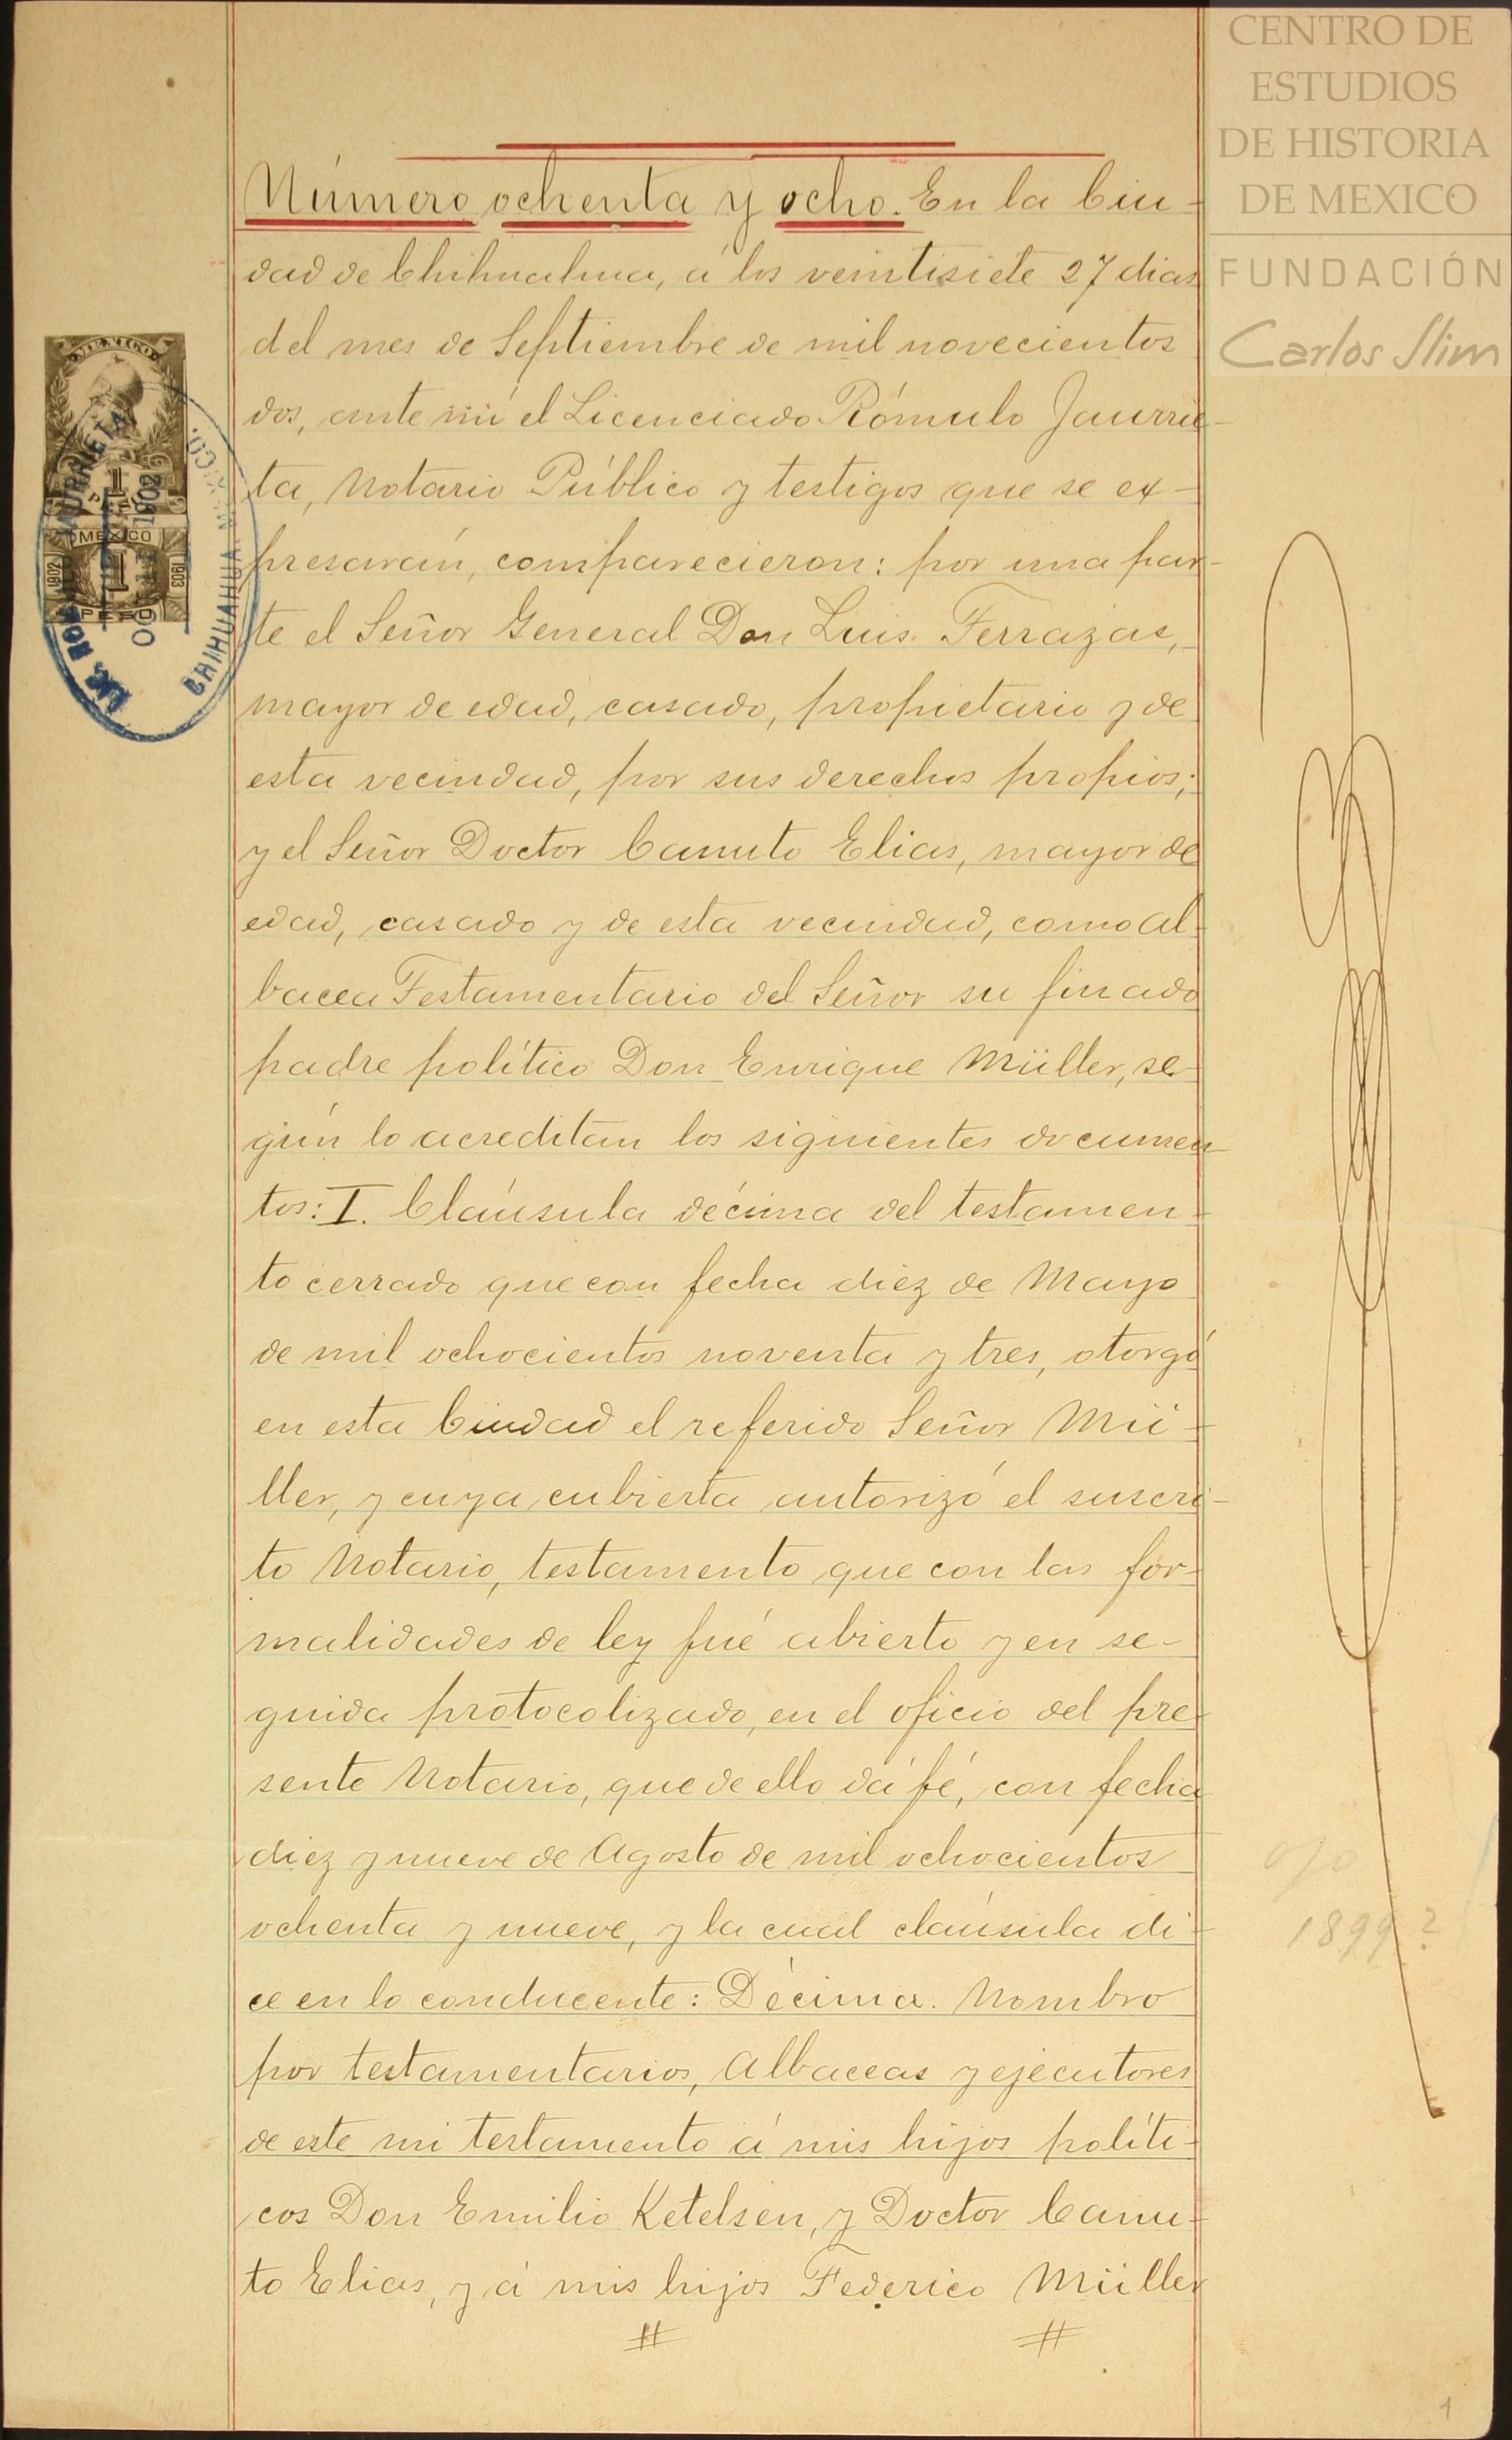 CENTRO DE
ESTUDIOS
DE HISTORIA
DE MEXICO
FUNDACIÓN
Carlos Slim
Número ochenta y ocho. En la Ciu-
dad de Chihuahua, á los veintisiete 27 dias
del mes de Septiembre de mil novecientos
dos, ante mí el Licenciado Rómulo Jaurrie-
ta, Notario Público y testigos que se ex-
presarán, comparecieron: por una par-
te el Señor General Don Luis Terrazas,
mayor de edad, casado, propietario y de
esta vecindad, por sus derechos propios;
y el Señor Doctor Canuto Elias, mayor de
edad, casado y de esta vecindad, como Al-
bacea Testamentario del Señor su finado
padre político Don Enrique Müller, se-
gún lo acreditan los siguientes documen-
tos: I. Claúsula décima del testamen-
to cerrado que con fecha diez de Mayo
de mil ochocientos noventa y tres, otorgó
en esta Ciudad el referido Señor Mü-
ller, y cuya cubierta autorizó el suscri-
to Notario, testamento que con las for-
malidades de ley fué abierto y en se-
guida protocolizado, en el oficio del pre-
sente Notario, que de ello dá fé, con fecha
diez y nueve de Agosto de mil ochocientos
ochenta y nueve, y la cual claúsula di-
ce en lo conducente: Décima. Nombro
por testamentarios, Albaceas y ejecutores
de este mi testamento á mis hijos políti-
cos Don Emilio Ketelsen, y Doctor Canu-
to Elias, y á mis hijos Federico Müller
MEXICO
1
PESO
MEXICO
1902
1
1903
PESO
CHIHUAHUA
ojo
1899?
1